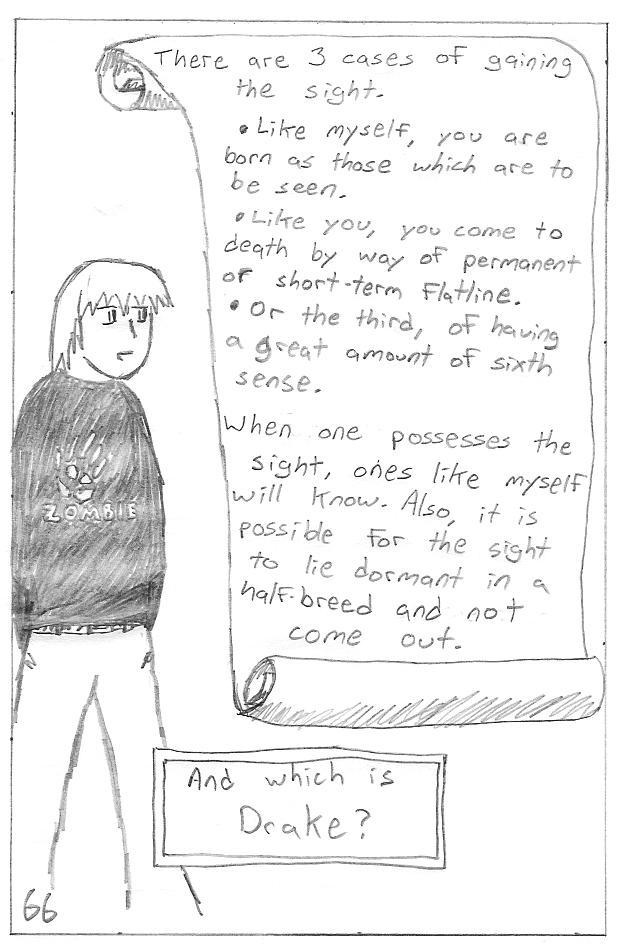 There are 3 cases of gaining
the sight.
• Like myself, you are
born as those which are to
be seen.
• Like you, you come to
death by way of permanent
or short-term flatline.
• Or the third, of having
a great amount of sixth
sense.
When one possesses the
sight, ones like myself
will know. Also, it is
possible for the sight
to lie dormant in a
half-breed and not
come out.
ZOMBIE
And which is
Drake?
66